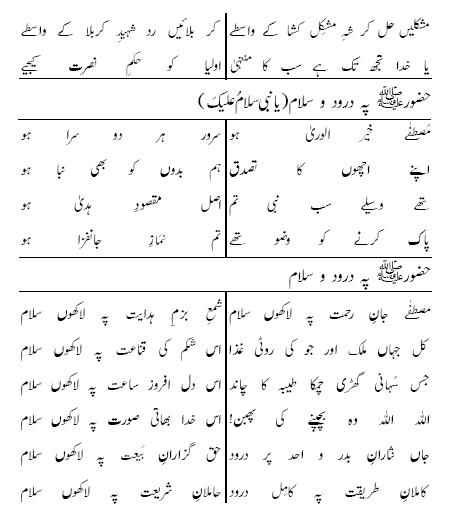 مشکلیں حل کر شہِ مشکل کشا کے واسطے کر بلائیں رد شہیدِ کربلا کے واسطے
یا خدا تجھ تک ہے سب کا منتہیٰ اولیا کو حکمِ نصرت کیجیے
حضورﷺ پہ درود و سلام (یا نبی سلامُ علیکَ)
مُصطفٰے خیر الوریٰ ہو سرورِ ہر دو سرا ہو
اپنے اچھوں کا تصدق ہم بدوں کو بھی نبا ہو
تھے وسیلے سب نبی تم اصل مقصودِ ہدیٰ ہو
پاک کرنے کو وضو تھے تم نمازِ جانفزا ہو
حضورﷺ پہ درود و سلام
مصطفٰے جانِ رحمت پہ لاکھوں سلام شمعِ بزمِ ہدایت پہ لاکھوں سلام
کل جہاں ملک اور جو کی روٹی غذا اس شکم کی قناعت پہ لاکھوں سلام
جس سُہانی گھڑی چمکا طیبہ کا چاند اس دل افروز ساعت پہ لاکھوں سلام
اللہ اللہ وہ بچپنے کی پھبن! اس خدا بھاتی صورت پہ لاکھوں سلام
جاں نثارانِ بدر و احد پر درود حق گزارانِ بیَعت پہ لاکھوں سلام
کاملانِ طریقت پہ کامِل درود حاملانِ شریعت پہ لاکھوں سلام